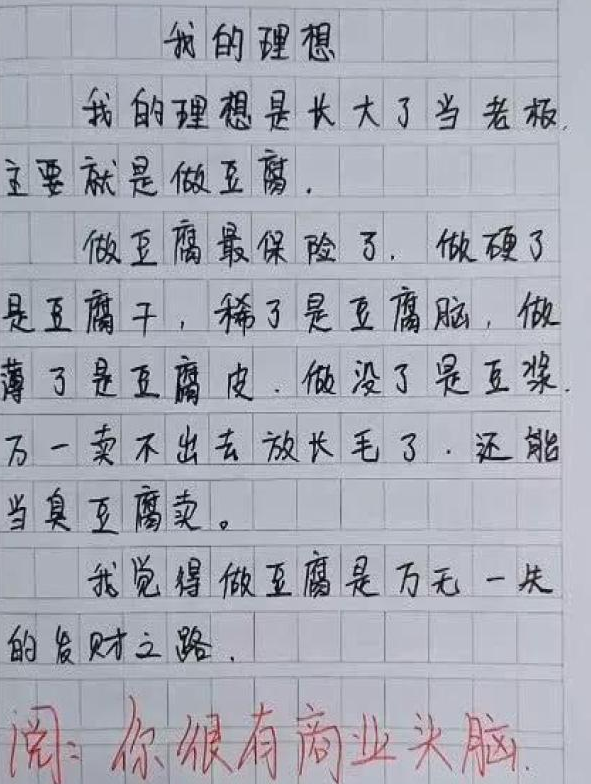 我的理想
我的理想是长大了当老板.
主要就是做豆腐.
做豆腐最保险了.做硬了
是豆腐干,稀了是豆腐脑,做
薄了是豆腐皮.做没了是豆浆.
万一卖不出去放长毛了.还能
当臭豆腐卖。
我觉得做豆腐是万无一失
的发财之路.
阅:你很有商业头脑.